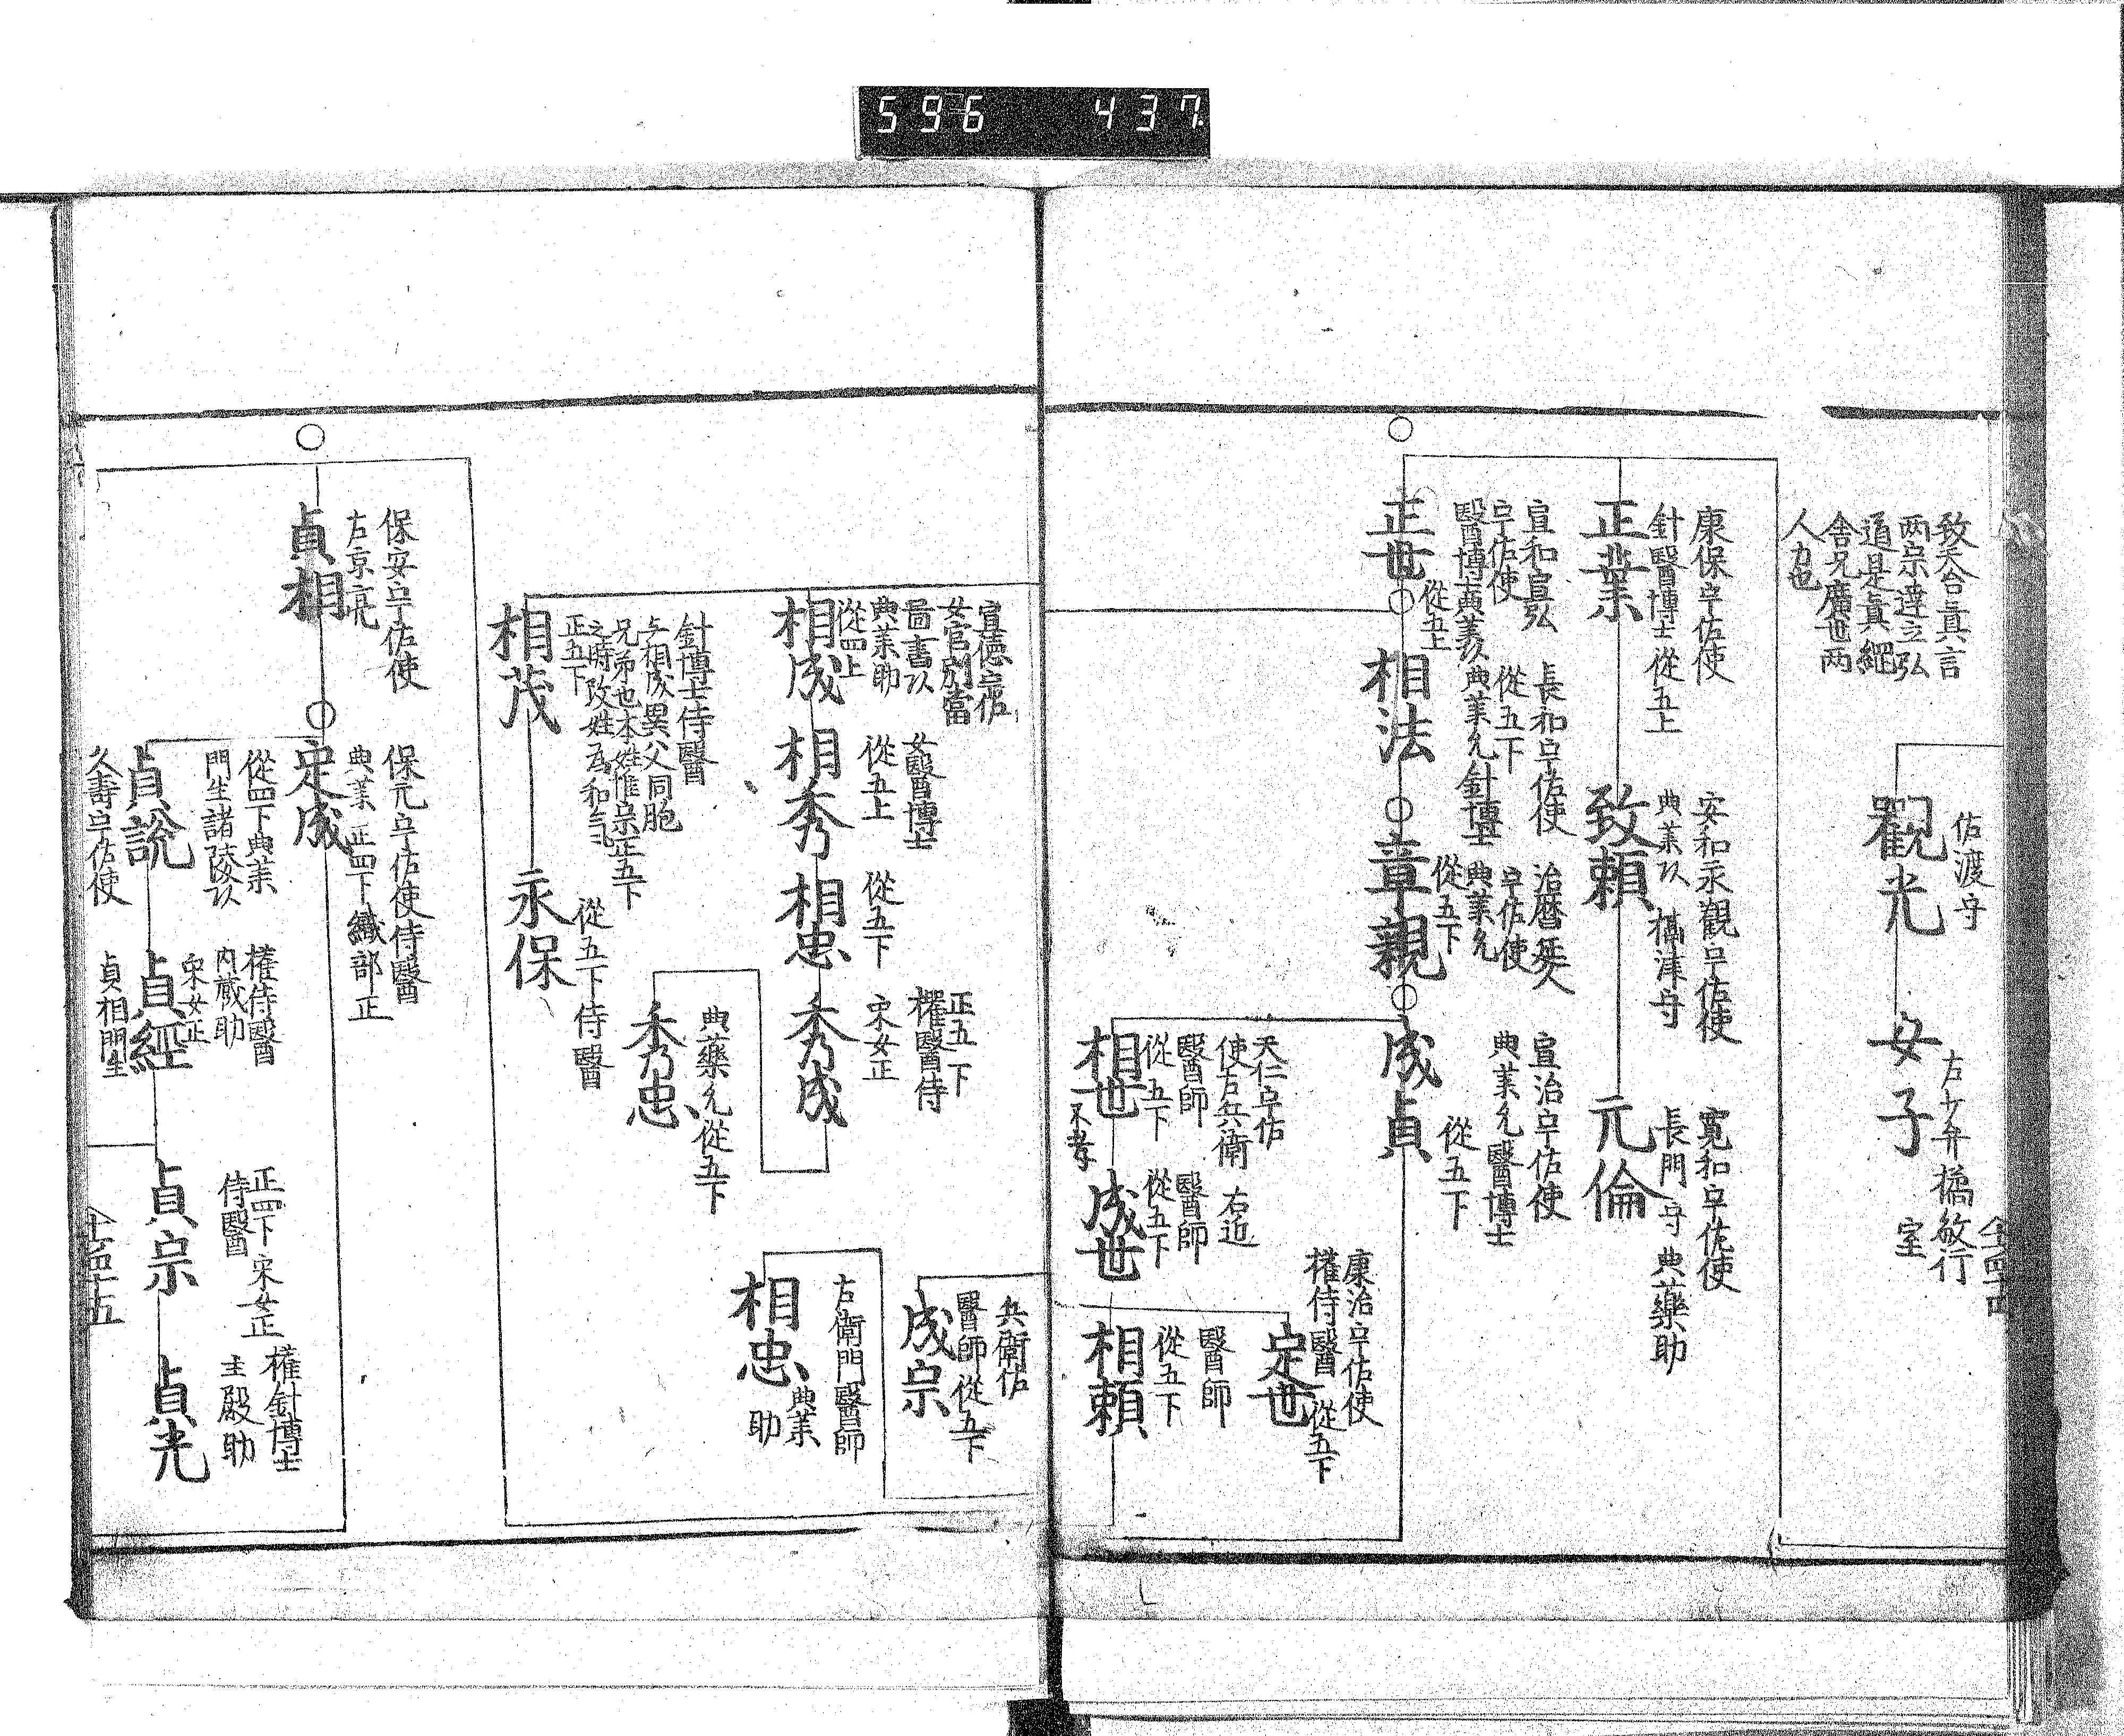 596 437
致天台真言
両宗達立弘
道是真縄
舎兄廣也两
人力也
佐渡守
觀光
左少弁橘敏行
室
女子
康保宇佐使
針醫博士從五上
正業
安和永觀宇佐使
典薬以 攝津守
致頼
寛和宇佐使
長門守典藥助
元倫
宣和宣弘
宇佐使
醫博士典薬以
從五上
正世
長和宇佐使
從五下
典薬允針博士
相法
治暦延久
宇佐使
典薬允
從五下
章親
宣治宇佐使
典薬允醫博士
從五下
成貞
康治宇佐使
權侍醫從五下
定世
天仁宇佐
使右兵衛
醫師
從五下
相世
不孝
右近
醫師
從五下
成世
醫師
從五下
相頼
兵衛佐
醫師從五下
成宗
左衛門醫師
典薬
助
相忠
女官別當
啚書以
典薬助
從四上
相成
女醫博士
從五上
相秀
從五下
相忠
正五下
權醫侍
采女正
秀成
典藥允從五下
秀忠
針博士侍醫
与相成異父同胞
兄弟也本姓惟宗正五下
之時改姓為和氣
正五下
相茂
從五下侍醫
永保
保安宇佐使
右京亮
貞相
保元宇佐使侍醫
典薬 正四下織部正
定成
從四下典薬
門生諸陵以
貞説
權侍醫
内蔵助
采女正
貞經
正四下采女正
侍醫
貞宗
權針博士
主殿助
貞光
久壽宇佐使
貞相門生